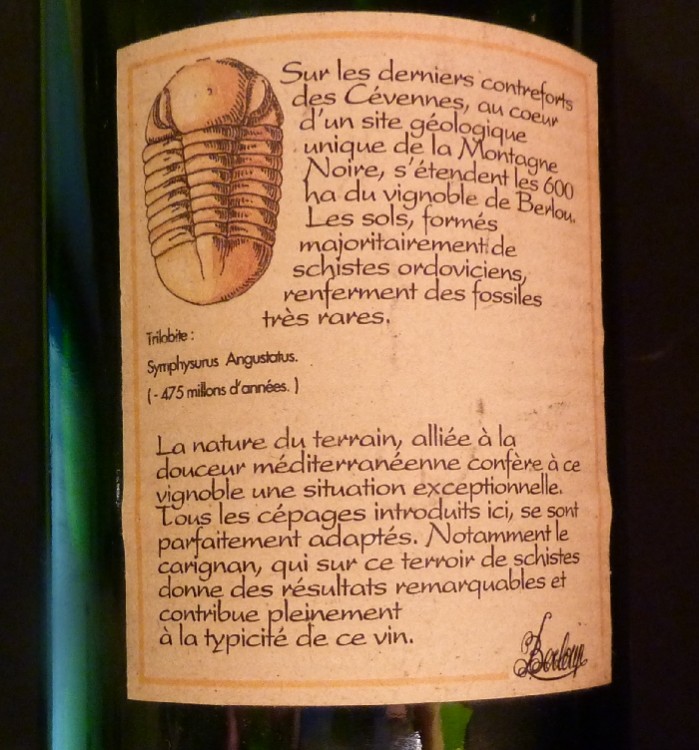 Sur les derniers contreforts
des Cévennes, au coeur
d'un site géologique
unique de la Montagne
Noire, s'étendent les 600
ha du vignoble de Berlou.
Les sols, formés
majoritairement de
schistes ordoviciens,
renferment des fossiles
très rares.
Trilobite :
Symphysurus Angustatus.
( - 475 millons d'années. )
La nature du terrain, alliée à la
douceur méditerranéenne confère à ce
vignoble une situation exceptionnelle.
Tous les cépages introduits ici, se sont
parfaitement adaptés. Notamment le
carignan, qui sur ce terroir de schistes
donne des résultats remarquables et
contribue pleinement
à la typicité de ce vin.
Berloup